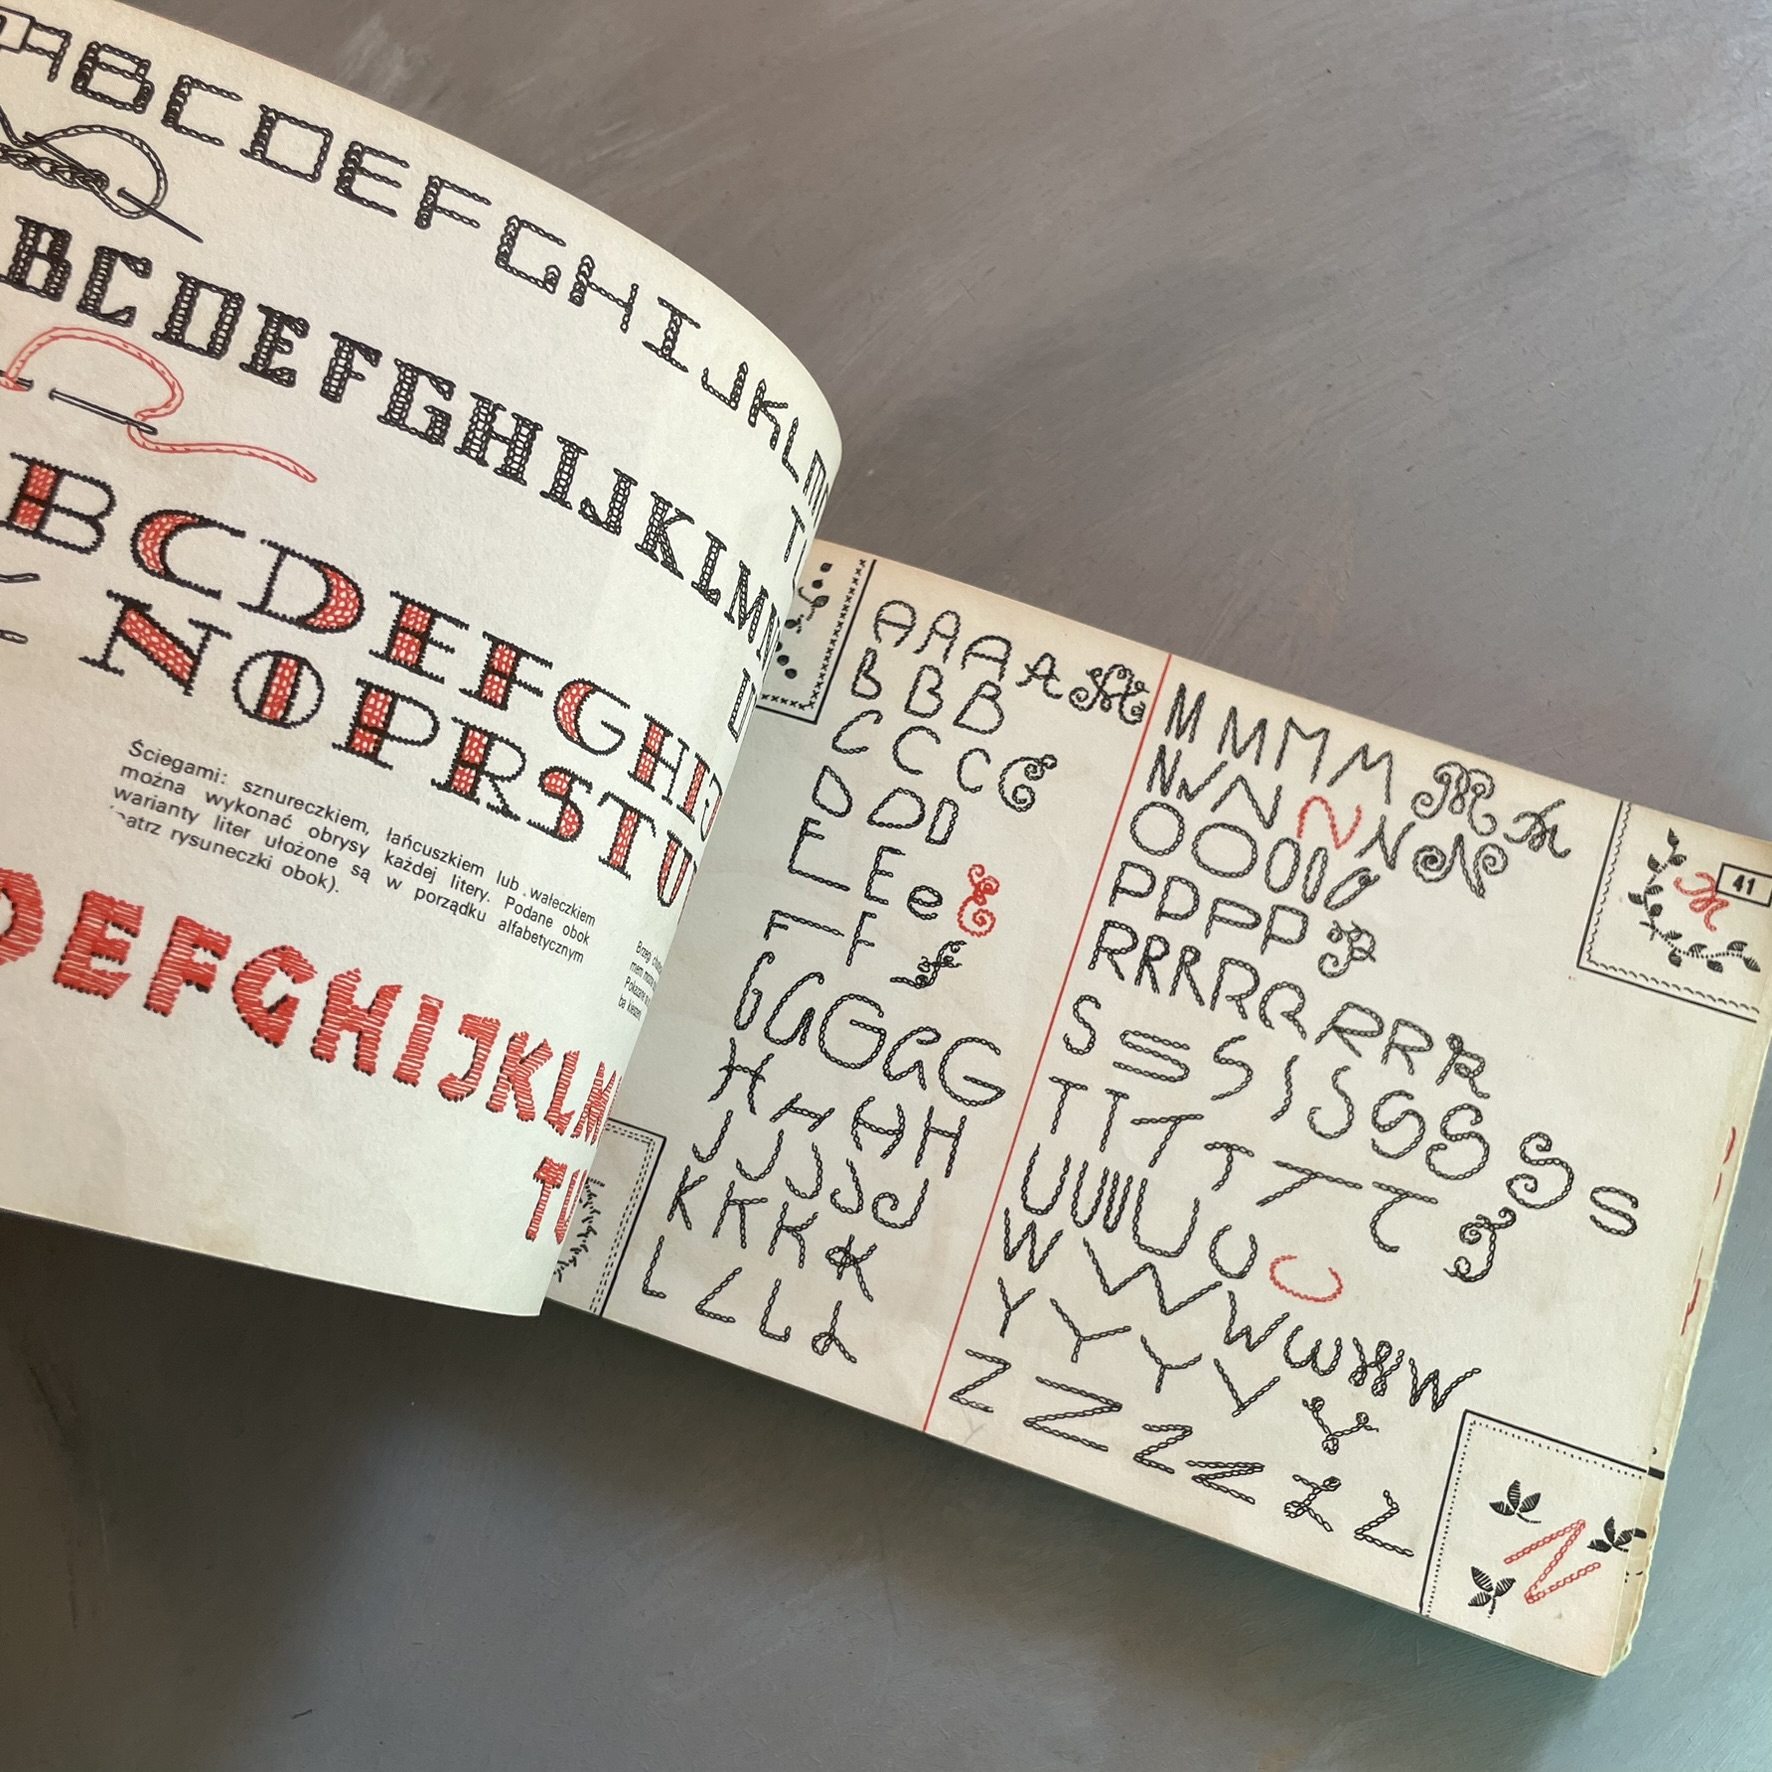 ABCDEFGHIJKLM
T
BCDEFGHIJKLMN
U
BCDEFGHIJ
NOPRSTU
Ściegami: sznureczkiem, łańcuszkiem lub wałeczkiem
można wykonać obrysy każdej litery. Podane obok
warianty liter ułożone są w porządku alfabetycznym
rysuneczki obok).
DEFGHIJKLM
TU
Brzegi
A A A A A
B B B
C C C C
D D D
E E e E
F F F
G G G G G
H H H H
J J J J J
K K K K
L L L L
M M M M M M
N N N N N N
O O O O O
P P P P P
R R R R R R R R
S S S S S S S S S
T T T T T T T
U U U U U U
W W W W W W
Y Y Y Y Y
Z Z Z Z Z Z
41
Z